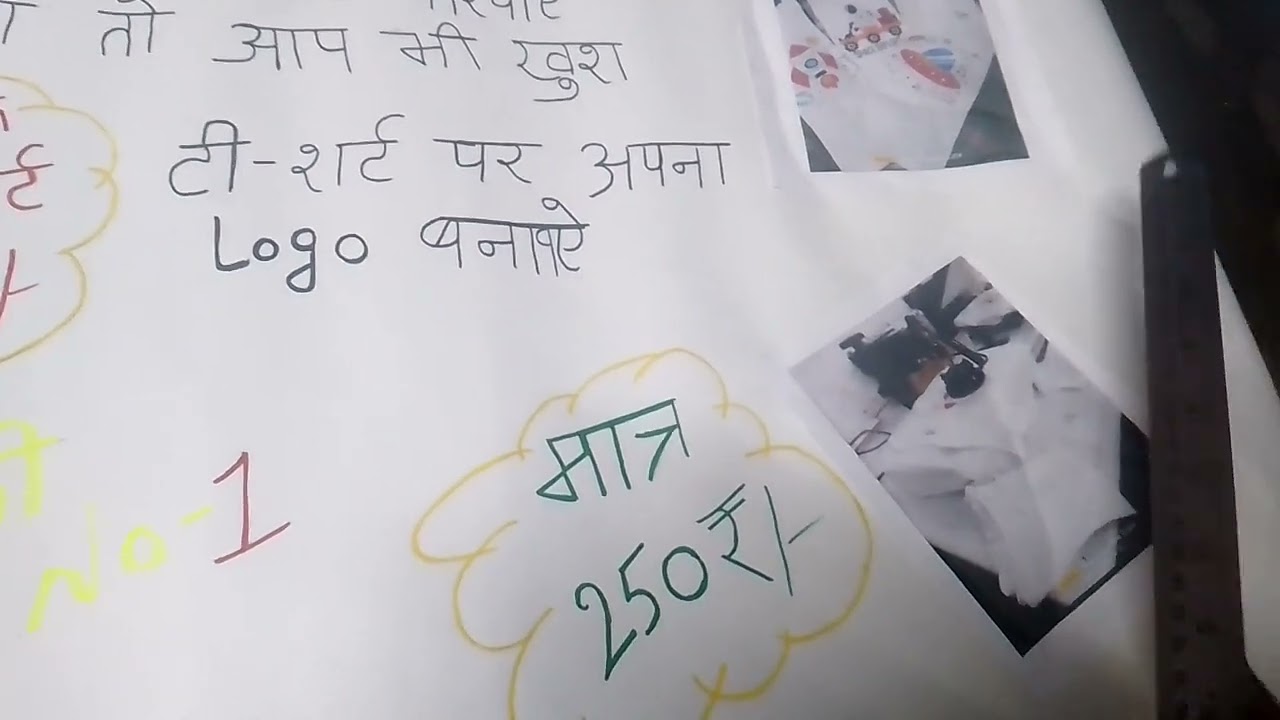 तो आप भी खुश
टी-शर्ट पर अपना
Logo बनाऐ
No-1
मात्र
250₹/-